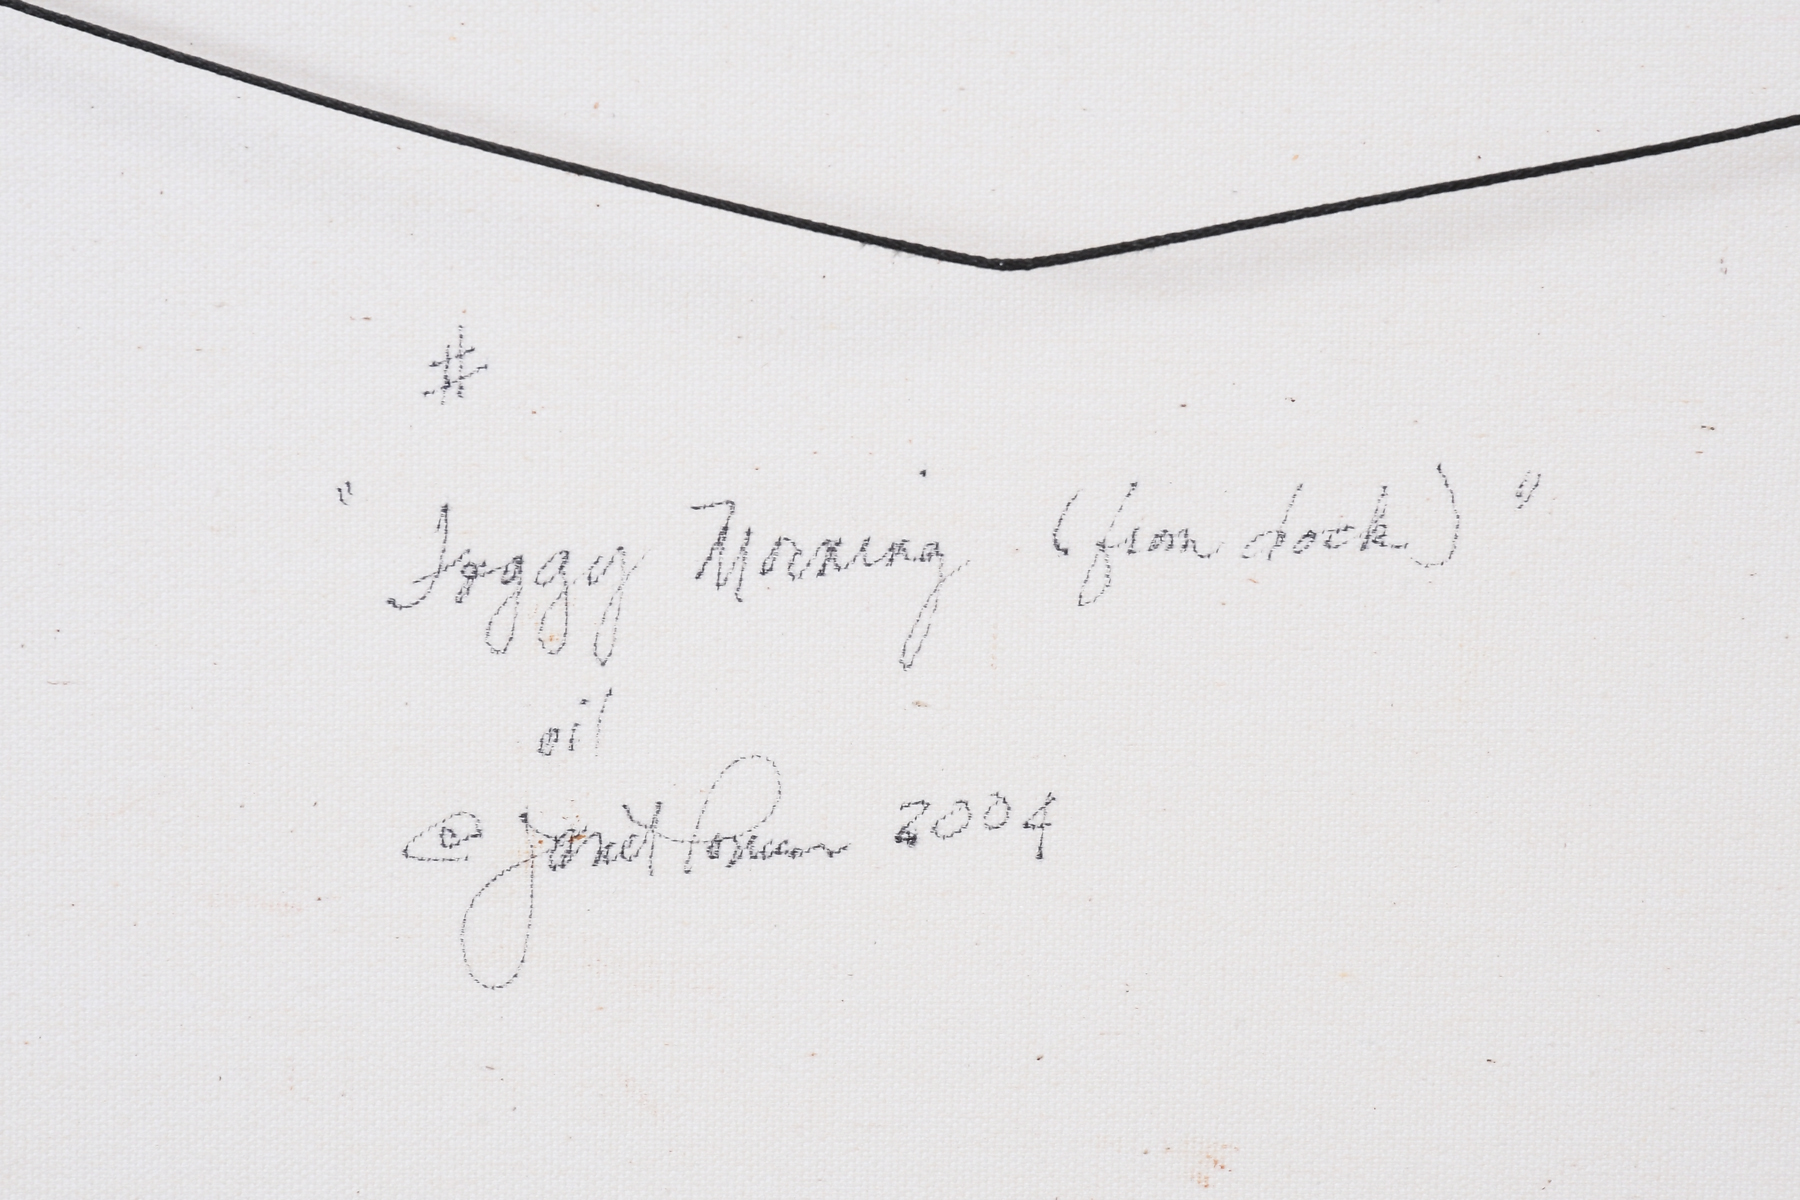 #
"Foggy Morning (from dock)"
oil
© Janet 2004